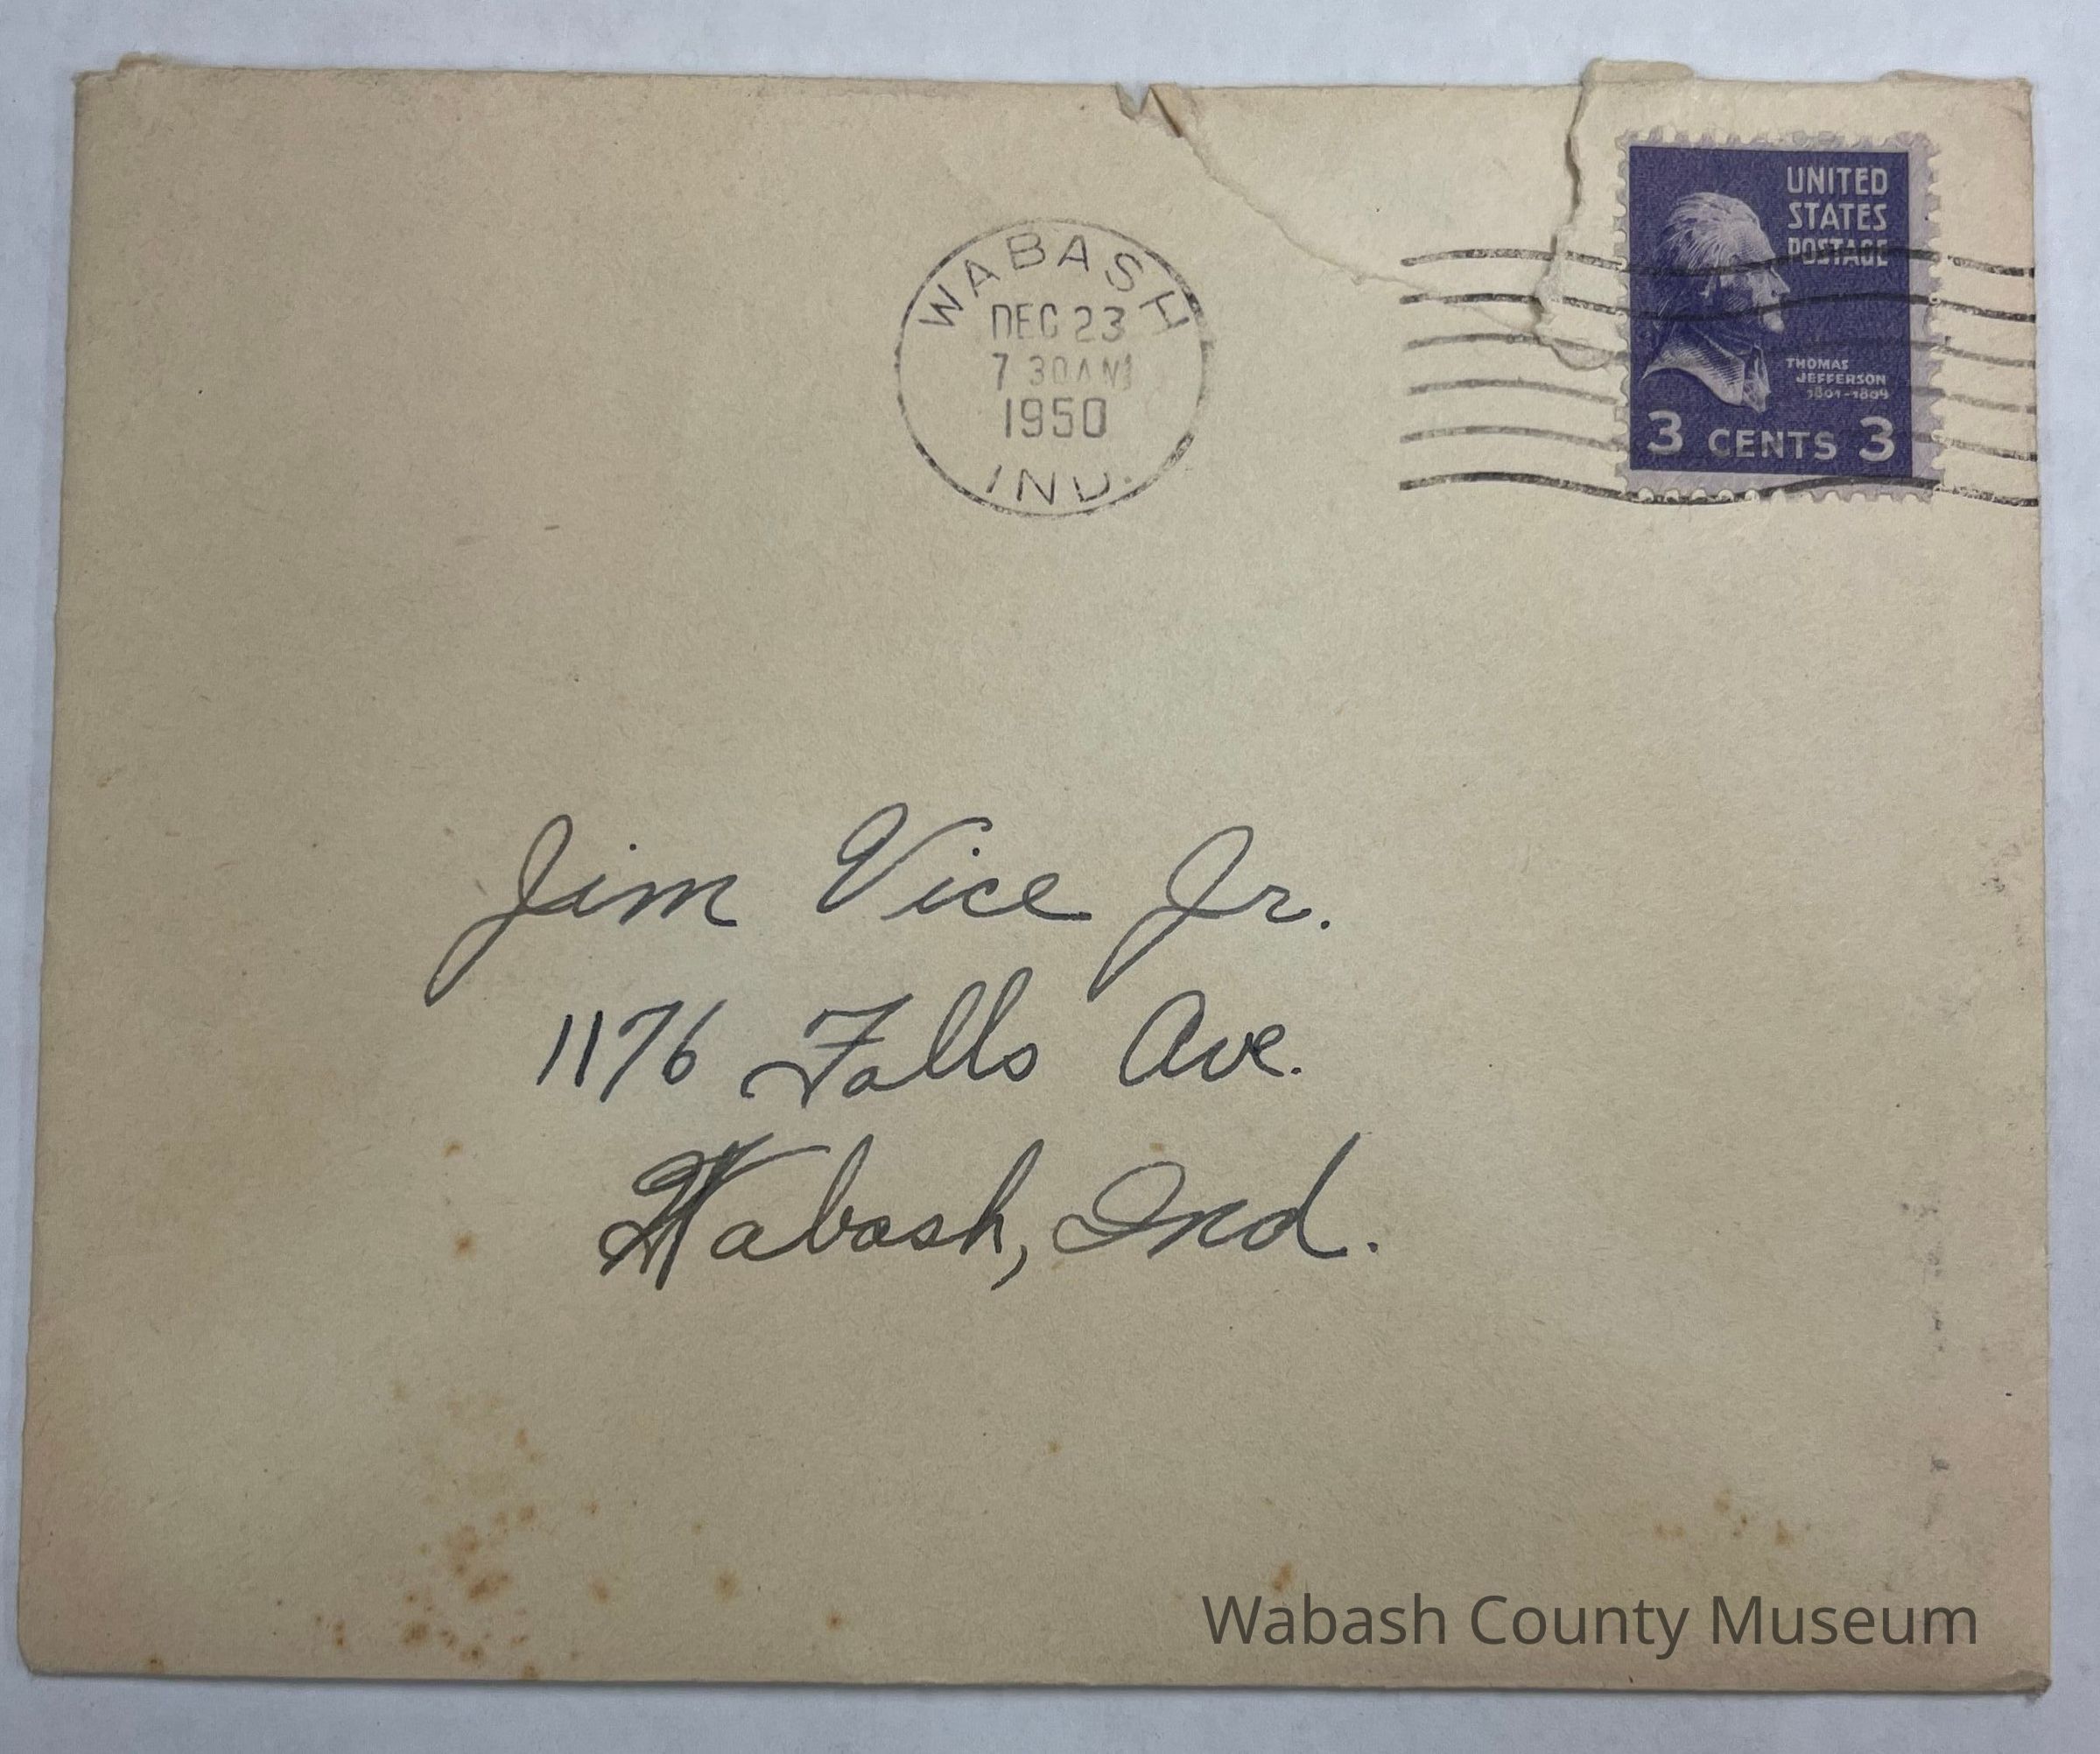 WABASH
DEC 23
7 30 AM
1950
IND.
UNITED
STATES
POSTAGE
THOMAS
JEFFERSON
1801-1809
3 CENTS 3
Jim Vice Jr.
1176 Falls Ave.
Wabash, Ind.
Wabash County Museum